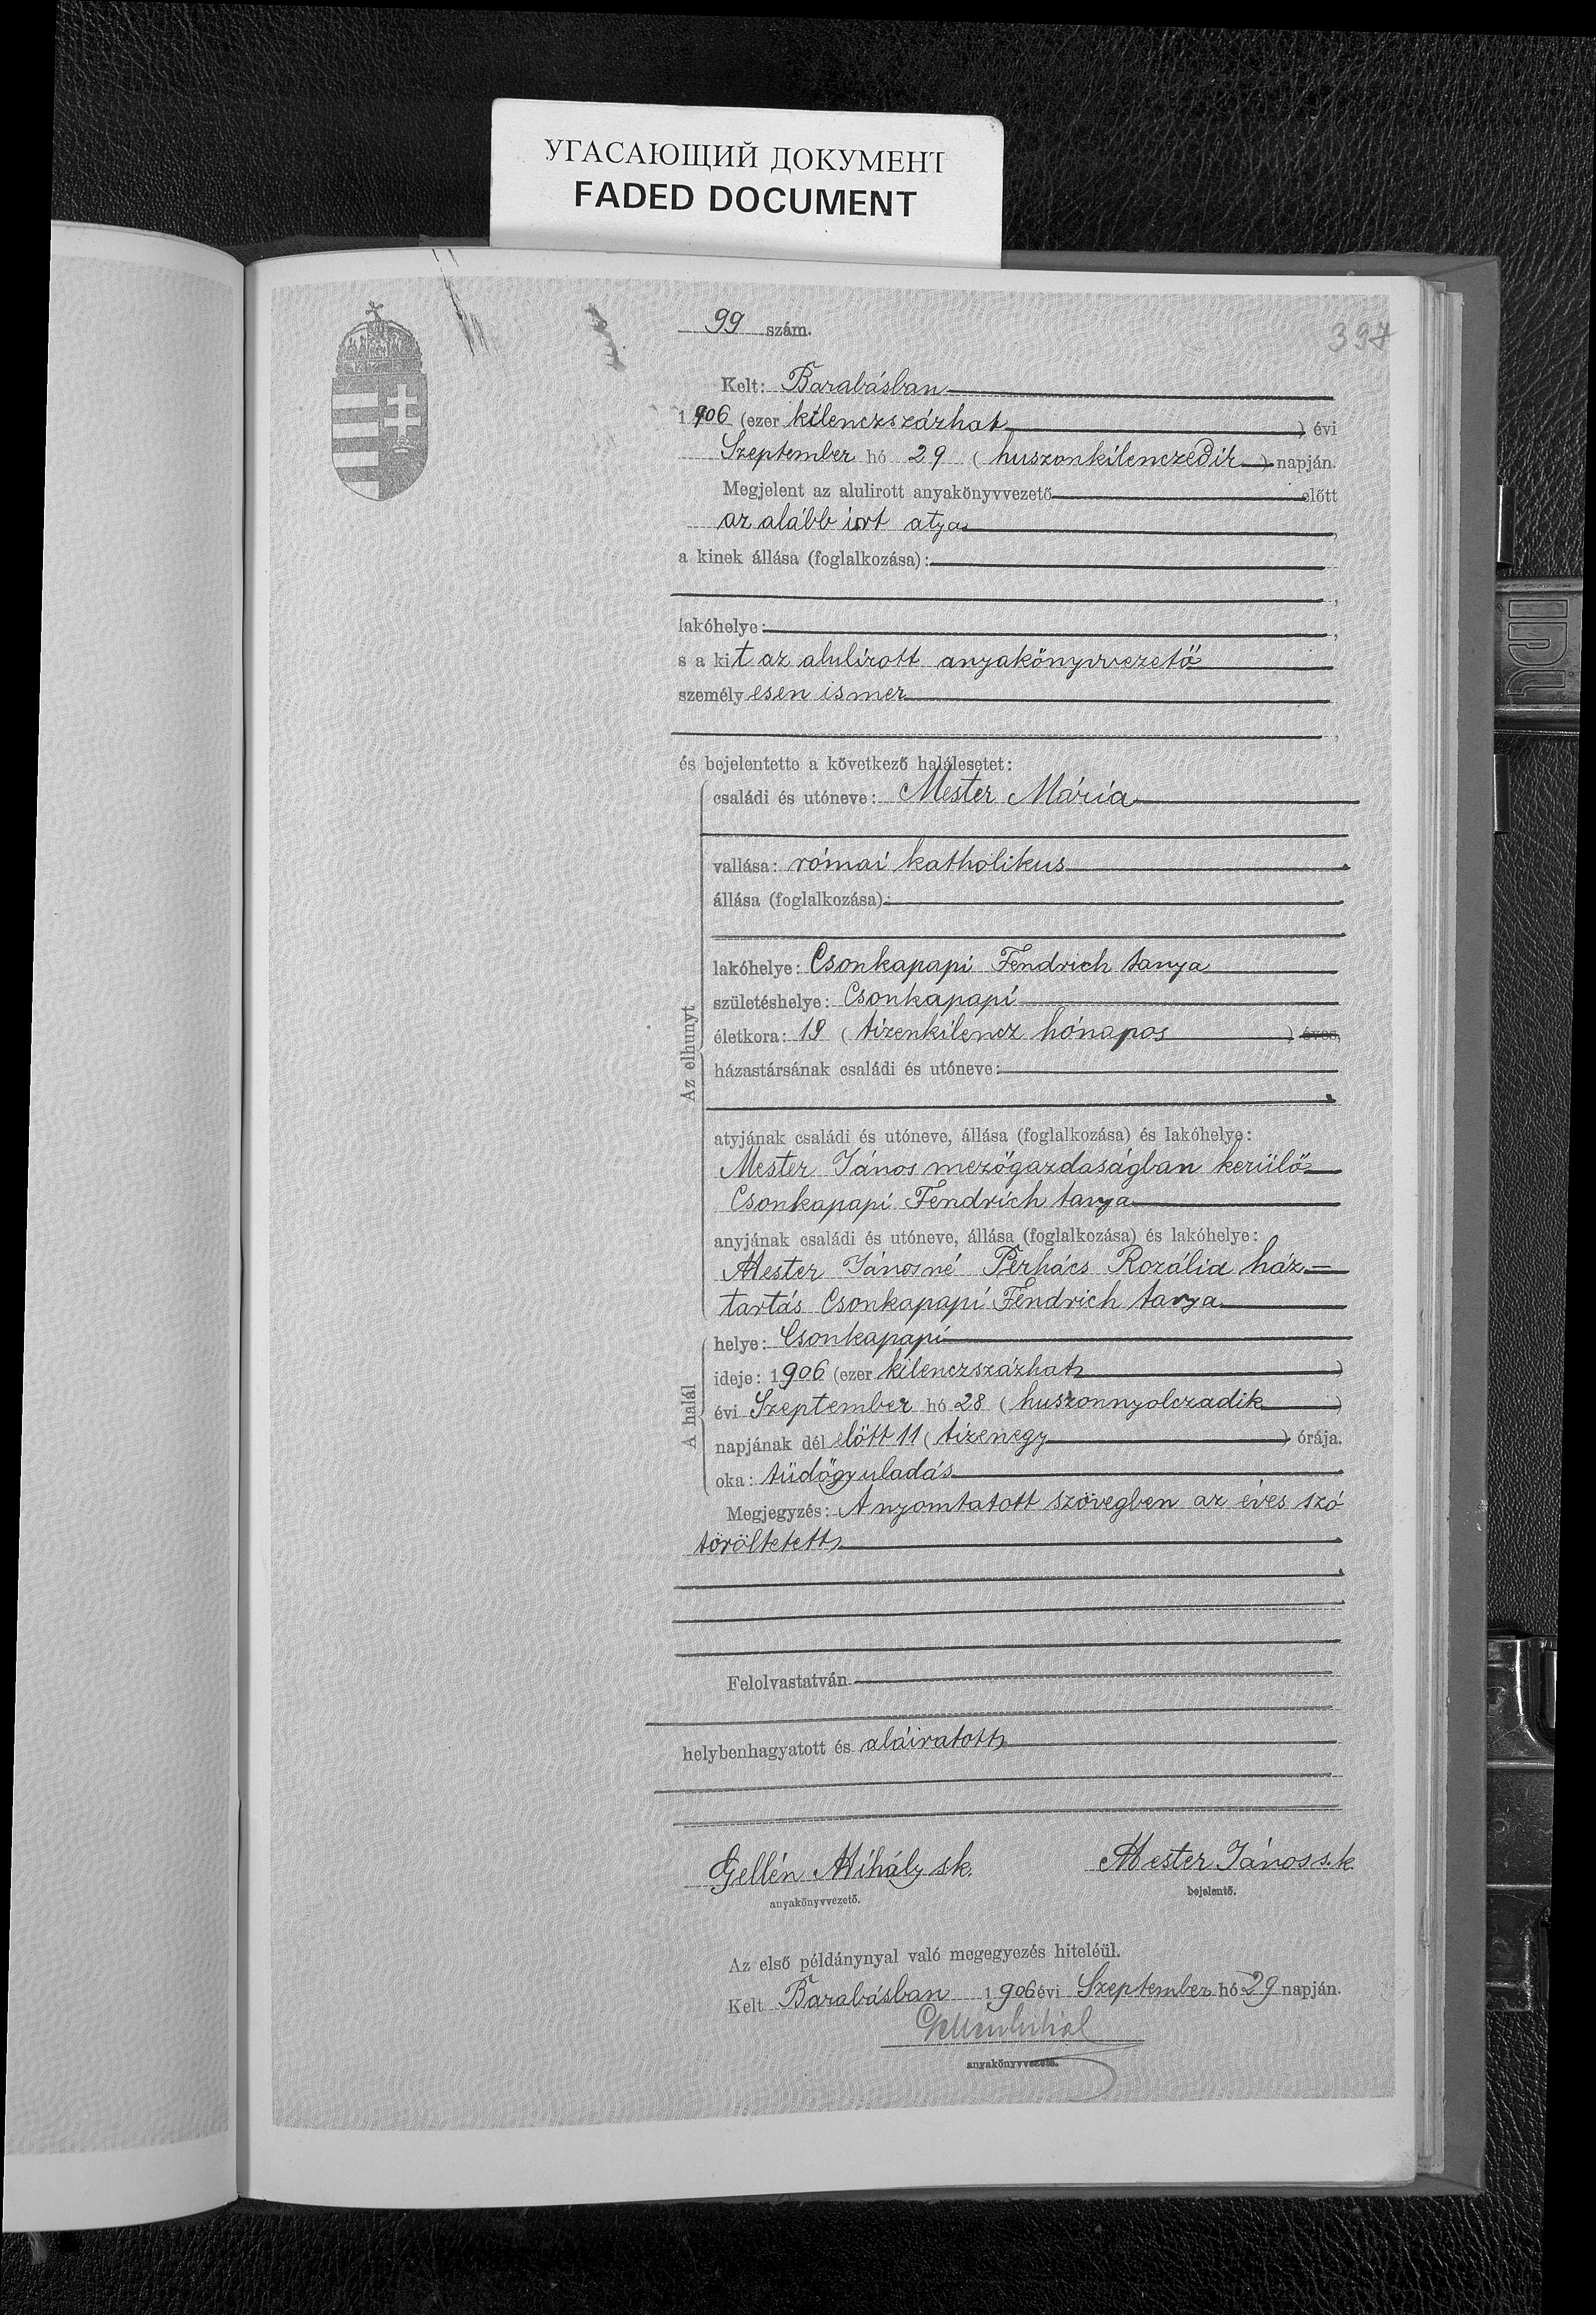 УГАСАЮЩИЙ ДОКУМЕНТ
FADED DOCUMENT
99 szám.
397
Kelt: Barabásban
1906 (ezer kilenczszázhat) évi
Szeptember hó 29 (huszonkilenczedik) napján.
Megjelent az alulirott anyakönyvvezető előtt
az alább irt atya,
a kinek állása (foglalkozása):
,
lakóhelye: ,
s a kit az alulirott anyakönyvvezető
személyesen ismer
,
és bejelentette a következő halálesetet:
Az elhunyt
családi és utóneve: Mester Mária
vallása: római katholikus
állása (foglalkozása):
lakóhelye: Csonkapapi Fendrich tanya
születéshelye: Csonkapapi
életkora: 19 (tizenkilencz hónapos) éves,
házastársának családi és utóneve:
atyjának családi és utóneve, állása (foglalkozása) és lakóhelye:
Mester János mezőgazdaságban kerülő
Csonkapapi Fendrich tanya
anyjának családi és utóneve, állása (foglalkozása) és lakóhelye:
Mester Jánosné Perhács Rozália ház=
tartás Csonkapapi Fendrich tanya
A halál
helye: Csonkapapi
ideje: 1906 (ezer kilenczszázhat)
évi Szeptember hó 28 (huszonnyolczadik)
napjának dél előtt 11 (tizenegy) órája.
oka: tüdőgyuladás
Megjegyzés: A nyomtatott szövegben az éves szó
töröltetett
Felolvastatván
helybenhagyatott és aláiratott
Gellén Mihály sk. Mester János s.k.
anyakönyvvezető. bejelentő.
Az első példánynyal való megegyezés hiteléül.
Kelt Barabásban 1906 évi Szeptember hó 29 napján.
anyakönyvvezető.